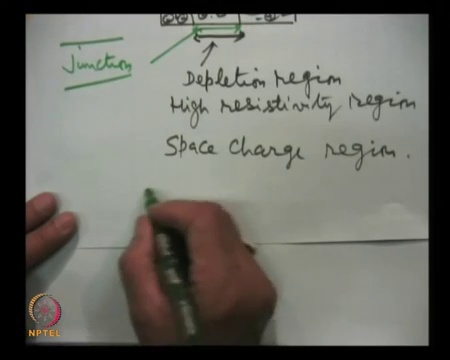 Junction
Depletion region
High resistivity region
Space Charge region.
NPTEL